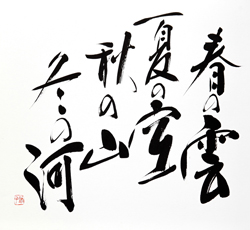 春の雲
夏の空
秋の山
冬の河